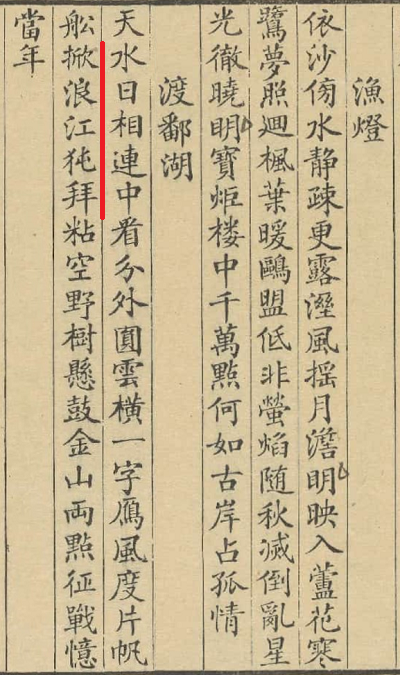 漁燈
依沙傍水静疎更露溼風揺月澹明映入蘆花寒
鷺夢照迴楓葉暖鷗盟低非螢焰随秋滅倒亂星
光徹曉明寶炬楼中千萬點何如古岸占孤情
渡鄱湖
天水日相連中看分外圓雲横一字鴈風度片帆
舩掀浪江㹠拜粘空野樹懸鼓金山両點征戰憶
當年